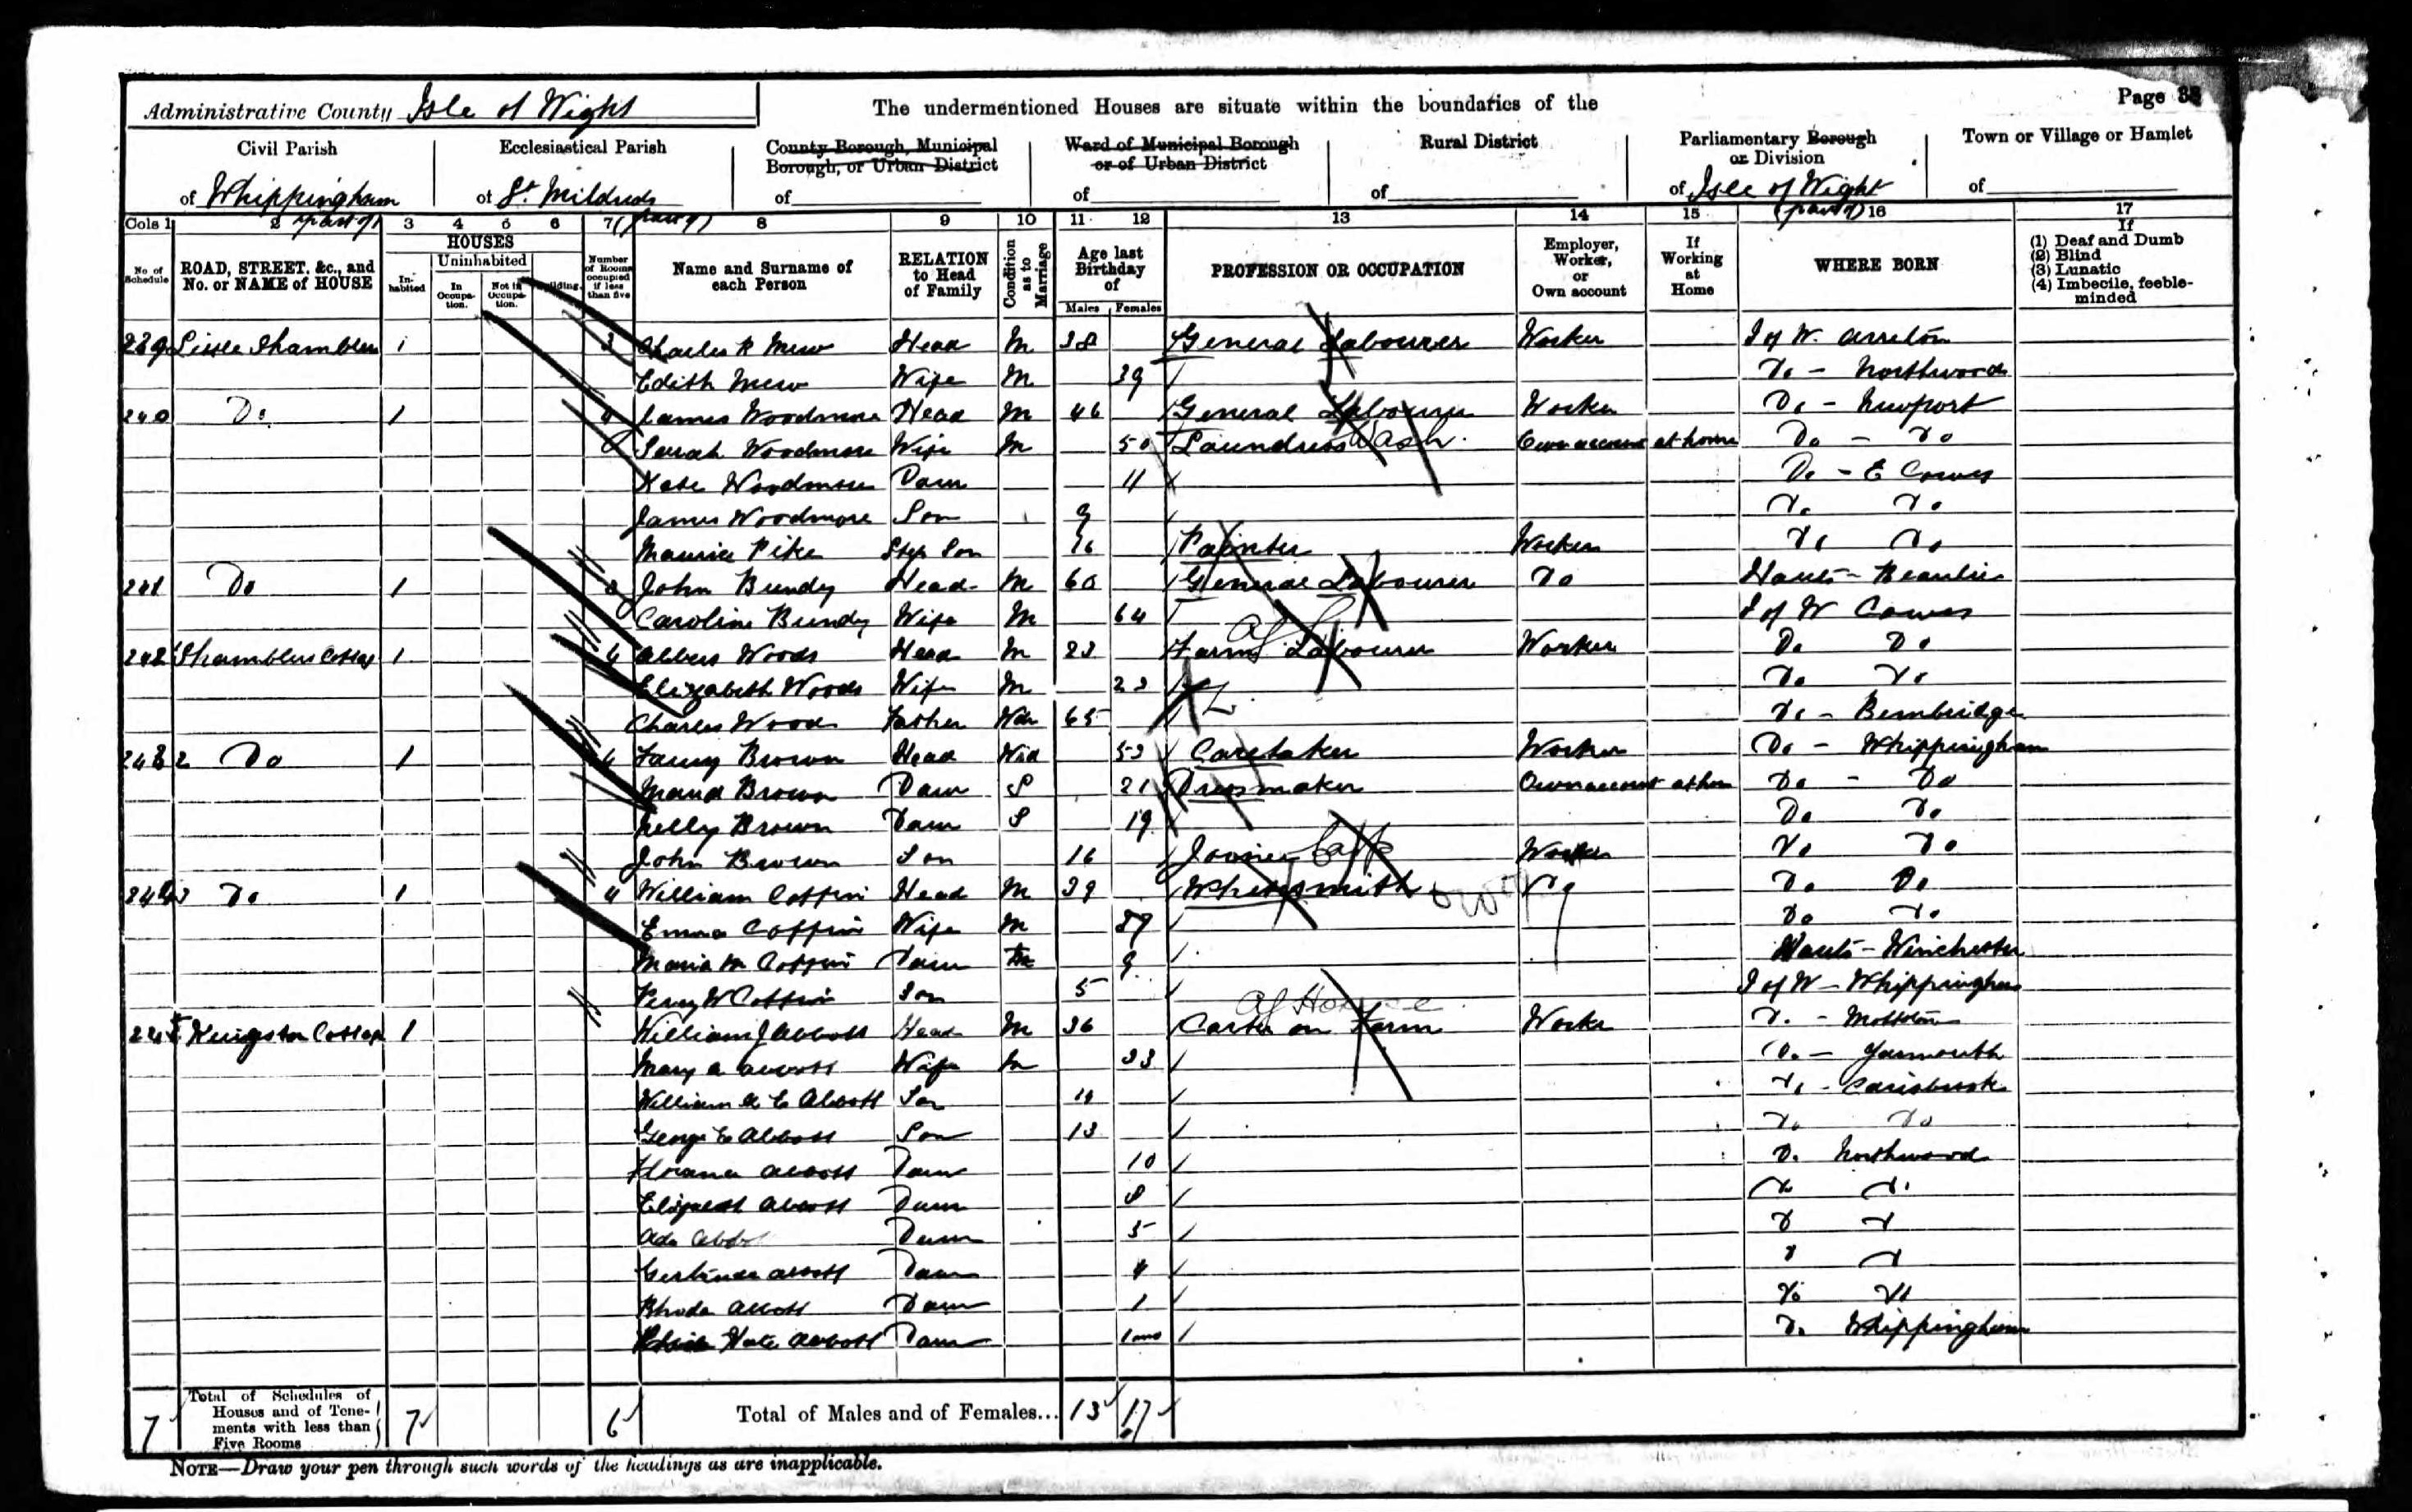 Administrative County Isle of Wight
The undermentioned Houses are situate within the boundaries of the
Page 38
Civil Parish of Whippingham (part of)
Ecclesiastical Parish of St. Mildreds (part of)
County Borough, Municipal Borough, or Urban District of
Ward of Municipal Borough or of Urban District of
Rural District of
Parliamentary Borough or Division of Isle of Wight (part of)
Town or Village or Hamlet of
Cols 1 2 3 4 5 6 7 8 9 10 11 12 13 14 15 16 17
No of Schedule
ROAD, STREET, &c., and No. or NAME of HOUSE
HOUSES
Inhabited
Uninhabited
In Occupation.
Not in Occupation.
Building.
Number of Rooms occupied if less than five
Name and Surname of each Person
RELATION to Head of Family
Condition as to Marriage
Age last Birthday of
Males Females
PROFESSION OR OCCUPATION
Employer, Worker, or Own account
If Working at Home
WHERE BORN
If
(1) Deaf and Dumb
(2) Blind
(3) Lunatic
(4) Imbecile, feeble-minded
239 Shamblers 1 3 Charles R Mew Head M 38 General Labourer Worker I of W. Arreton
Edith Mew Wife M 39 Do - Northwood
240 Do 1 4 James Woodmore Head M 46 General Labourer Worker Do - Newport
Sarah Woodmore Wife M 50 Laundress Wash. Own account at home Do - Do
Kate Woodmore Daur 11 Do - E Cowes
James Woodmore Son 9 Do Do
Maurice Pike Step Son 16 Painter Worker Do Do
241 Do 1 3 John Bundy Head M 60 General Labourer Do Hants - Beaulieu
Caroline Bundy Wife M 64 I of W Cowes
242 Shamblers Cottage 1 4 Albert Woods Head M 23 Farm Labourer Worker Do Do
Elizabeth Woods Wife M 23 Do Do
Charles Wood Father Wdr 65 Do - Bembridge
243 2 Do 1 4 Fanny Brown Head Wid 53 Caretaker Worker Do - Whippingham
Maud Brown Daur S 21 Dressmaker Own account at home Do - Do
Nelly Brown Daur S 19 Do Do
John Brown Son 16 Joiner Carp Worker Do Do
244 3 Do 1 4 William Coffin Head M 39 Whitesmith Do Do Do
Emma Coffin Wife M 37 Do Do
Maria M Coffin Daur 9 Hants - Winchester
Percy W Coffin Son 5 I of W - Whippingham
245 Kingston Cottage 1 William J Abbott Head M 36 Carter on Farm Worker Do - Mottistone
Mary A Abbott Wife M 33 Do - Yarmouth
William E Abbott Son Do - Carisbrook
George E Abbott Son 13 Do Do
Abbott Daur 10 Do Northwood
Elizabeth Abbott Daur 8 Do Do
Ada Abbott Daur 5 Do Do
Gertrude Abbott Daur 4 Do Do
Rhoda Abbott Daur 1 Do Do
Kate Abbott Daur 1 mo Do Whippingham
7 Total of Schedules of Houses and of Tenements with less than Five Rooms 7 6 Total of Males and of Females... 13 17
NOTE—Draw your pen through such words of the headings as are inapplicable.